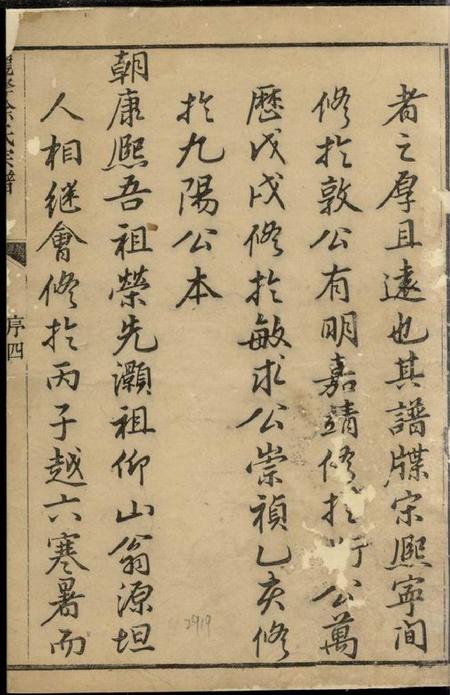 者之厚且遠也其譜牒宋熙寧間
修於敦公有明嘉靖修於 公萬
歷戊戌修於敏求公崇禎乙亥修
於九陽公本
朝康熙吾祖榮先灝祖仰山翁源坦
人相继會修於丙子越六寒暑而
氏宗譜
序四
2919